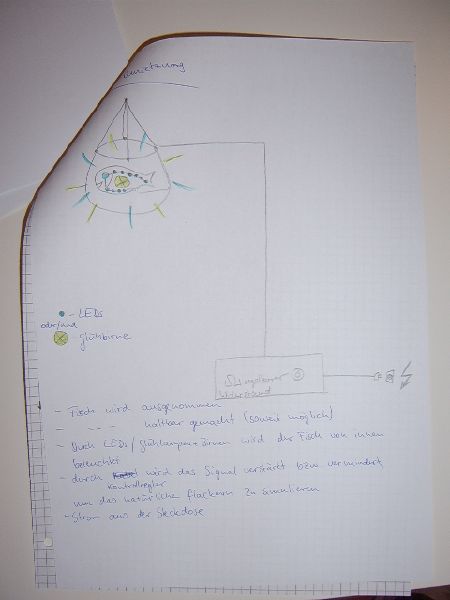 Umsetzung
- LEDs
oder/und
- glühbirne
Widerstand
- Fisch wird ausgenommen
- " " " haltbar gemacht (soweit möglich)
- Durch LEDs/glühlampen wird der Fisch von innen
beleuchtet
- durch wird das Signal verstärkt bzw vermindert
Kontrollregler
um das natürliche flackern zu simulieren
- Strom aus der Steckdose